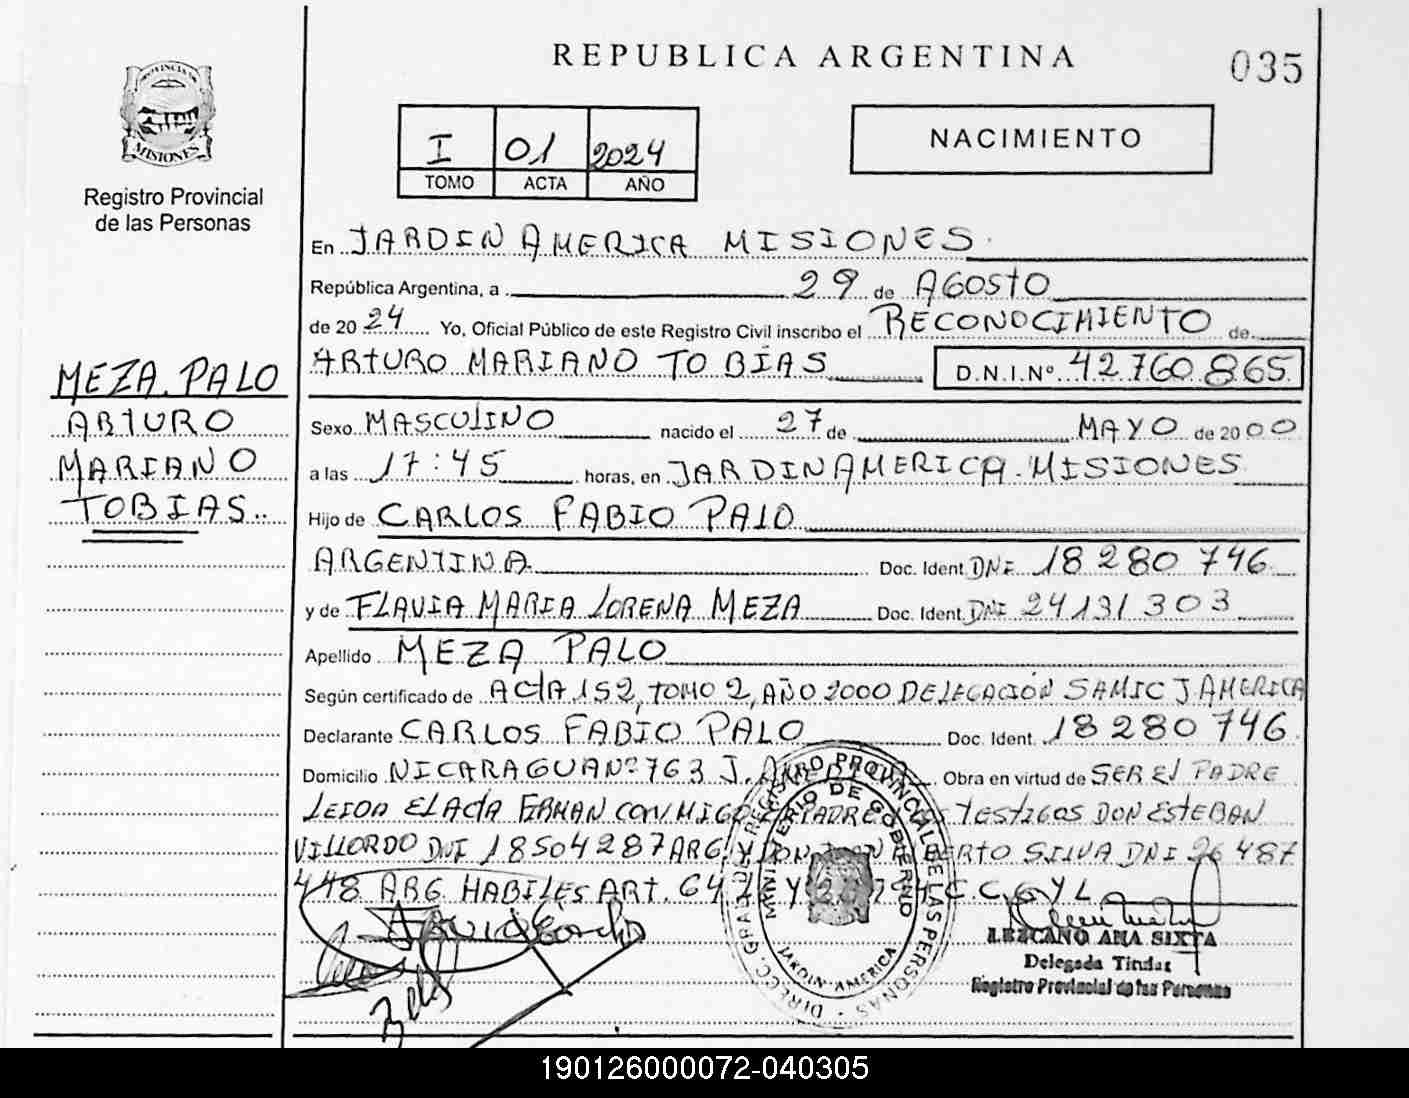 REPUBLICA ARGENTINA
035
PROVINCIA DE
MISIONES
Registro Provincial
de las Personas
I 01 2024
TOMO ACTA AÑO
NACIMIENTO
En JARDIN AMERICA MISIONES
República Argentina, a 29 de AGOSTO
de 2024 Yo, Oficial Público de este Registro Civil inscribo el RECONOCIMIENTO de
ARTURO MARIANO TOBÍAS D.N.I.Nº 42760865
MEZA PALO
ARTURO
MARIANO
TOBIAS
Sexo MASCULINO nacido el 27 de MAYO de 2000
a las 17:45 horas, en JARDIN AMERICA. MISIONES
Hijo de CARLOS FABIO PALO
ARGENTINA Doc. Ident. DNI 18280746
y de FLAVIA MARIA LORENA MEZA Doc. Ident. DNI 24131303
Apellido MEZA PALO
Según certificado de ACTA 152, TOMO 2, AÑO 2000 DELEGACIÓN SAMIC J. AMERICA
Declarante CARLOS FABIO PALO Doc. Ident. 18280746
Domicilio NICARAGUA Nº 763 J. AMERICA Obra en virtud de SER EL PADRE
LEIDA EL ACTA FIRMAN CONMIGO PADRE TESTIGOS DON ESTEBAN
VILLORDO DNI 18504287 ARG. Y DON BERTO SILVA DNI 26487
448 ARG HABILES ART. 64 Y C.C. Y L
DIRECC. GRAL. DE REGISTRO PROVINCIAL DE LAS PERSONAS
MINISTERIO DE GOBIERNO
JARDIN AMERICA
LEZCANO ANA SIXTA
Delegada Titular
Registro Provincial de las Personas
190126000072-040305